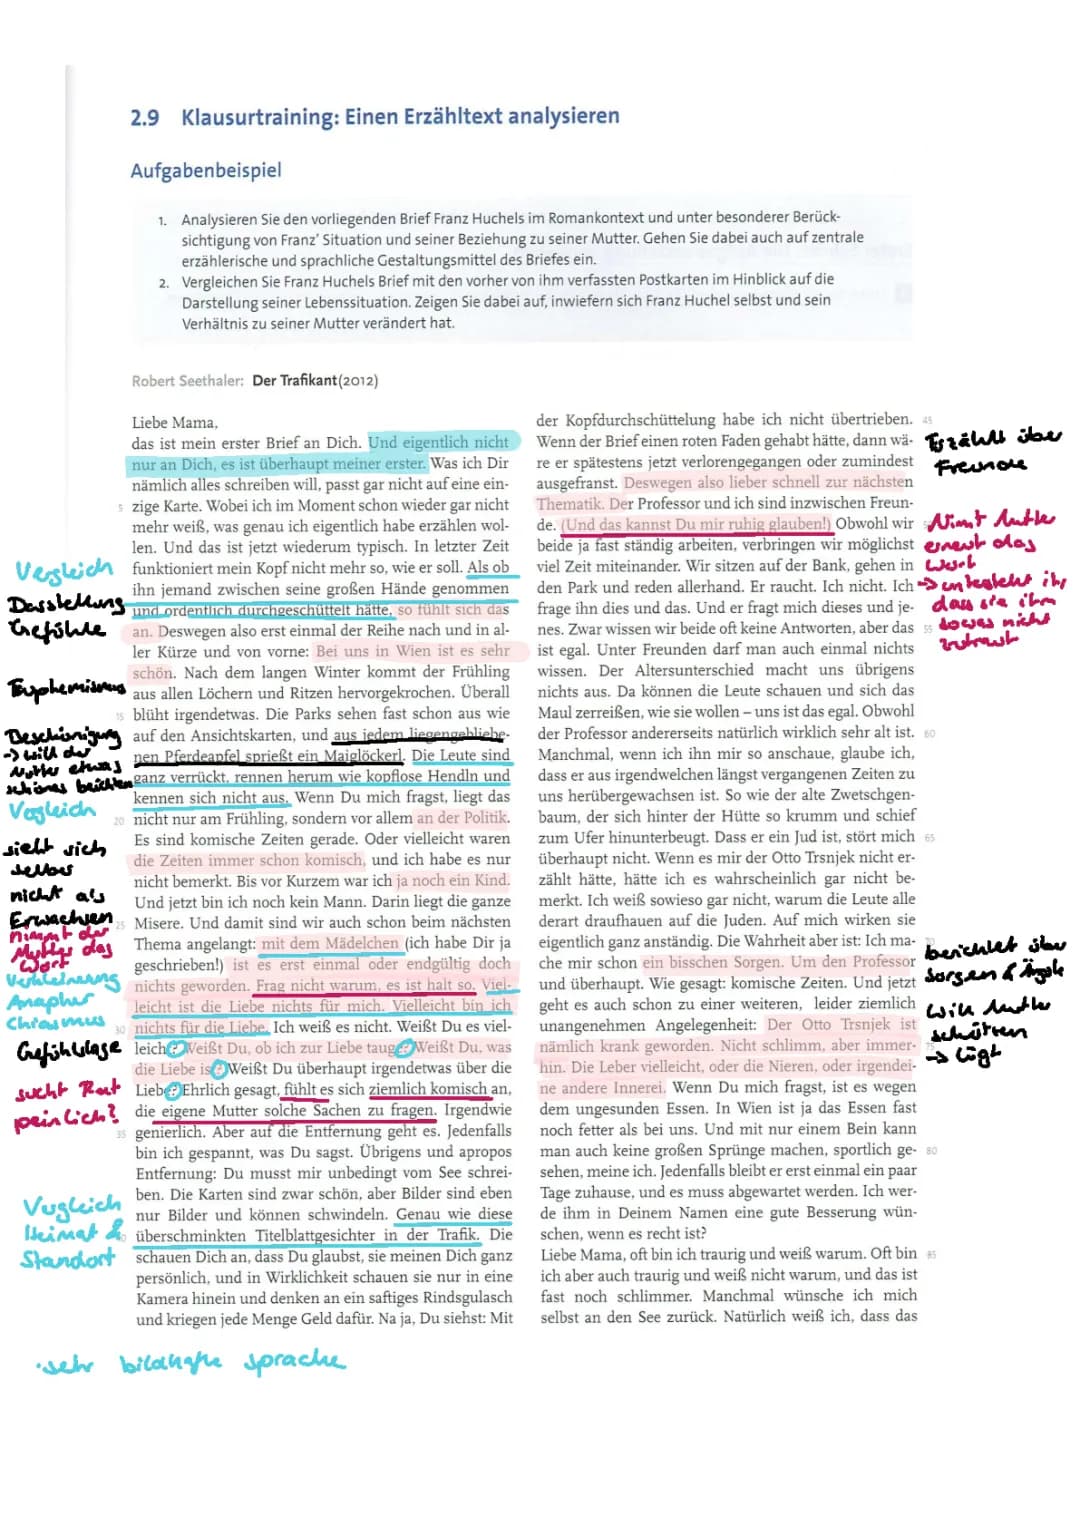 2.9 Klausurtraining: Einen Erzähltext analysieren
Aufgabenbeispiel
1. Analysieren Sie den vorliegenden Brief Franz Huchels im Romankontext und unter besonderer Berück-
sichtigung von Franz' Situation und seiner Beziehung zu seiner Mutter. Gehen Sie dabei auch auf zentrale
erzählerische und sprachliche Gestaltungsmittel des Briefes ein.
2. Vergleichen Sie Franz Huchels Brief mit den vorher von ihm verfassten Postkarten im Hinblick auf die
Darstellung seiner Lebenssituation. Zeigen Sie dabei auf, inwiefern sich Franz Huchel selbst und sein
Verhältnis zu seiner Mutter verändert hat.
Robert Seethaler: Der Trafikant (2012)
Liebe Mama,
das ist mein erster Brief an Dich. Und eigentlich nicht
nur an Dich, es ist überhaupt meiner erster. Was ich Dir
nämlich alles schreiben will, passt gar nicht auf eine ein-
5 zige Karte. Wobei ich im Moment schon wieder gar nicht
mehr weiß, was genau ich eigentlich habe erzählen wol-
len. Und das ist jetzt wiederum typisch. In letzter Zeit
funktioniert mein Kopf nicht mehr so, wie er soll. Als ob
ihn jemand zwischen seine großen Hände genommen
und ordentlich durchgeschüttelt hätte, so fühlt sich das
an. Deswegen also erst einmal der Reihe nach und in al-
ler Kürze und von vorne: Bei uns in Wien ist es sehr
schön. Nach dem langen Winter kommt der Frühling
aus allen Löchern und Ritzen hervorgekrochen. Überall
15 blüht irgendetwas. Die Parks sehen fast schon aus wie
auf den Ansichtskarten, und aus jedem liegengebliebe-
nen Pferdeapfel sprießt ein Maiglöckerl. Die Leute sind
ganz verrückt, rennen herum wie kopflose Hendln und
kennen sich nicht aus. Wenn Du mich fragst, liegt das
20 nicht nur am Frühling, sondern vor allem an der Politik.
Es sind komische Zeiten gerade. Oder vielleicht waren
die Zeiten immer schon komisch, und ich habe es nur
nicht bemerkt. Bis vor Kurzem war ich ja noch ein Kind.
Und jetzt bin ich noch kein Mann. Darin liegt die ganze
25 Misere. Und damit sind wir auch schon beim nächsten
Thema angelangt: mit dem Mädelchen (ich habe Dir ja
geschrieben!) ist es erst einmal oder endgültig doch
nichts geworden. Frag nicht warum, es ist halt so. Viel-
leicht ist die Liebe nichts für mich. Vielleicht bin ich
30 nichts für die Liebe. Ich weiß es nicht. Weißt Du es viel-
leicht? Weißt Du, ob ich zur Liebe tauge? Weißt Du, was
die Liebe ist? Weißt Du überhaupt irgendetwas über die
Liebe? Ehrlich gesagt, fühlt es sich ziemlich komisch an,
die eigene Mutter solche Sachen zu fragen. Irgendwie
35 genierlich. Aber auf die Entfernung geht es. Jedenfalls
bin ich gespannt, was Du sagst. Übrigens und apropos
Entfernung: Du musst mir unbedingt vom See schrei-
ben. Die Karten sind zwar schön, aber Bilder sind eben
nur Bilder und können schwindeln. Genau wie diese
überschminkten Titelblattgesichter in der Trafik. Die
schauen Dich an, dass Du glaubst, sie meinen Dich ganz
persönlich, und in Wirklichkeit schauen sie nur in eine
Kamera hinein und denken an ein saftiges Rindsgulasch
und kriegen jede Menge Geld dafür. Na ja, Du siehst: Mit
Vergleich
Darstellung
Gefühle
Euphemismus
Beschönigung
-> will der
Mutter etwas
schönes berichten
Vergleich
sieht sich
selber
nicht als
Erwachsen
nimmt der
Mutter das
Wort
Verkleinerung
Anapher
Chiasmus
Gefühlslage
sucht Rat
peinlich?
Vergleich
Heimat &
Standort
• sehr bildhafte sprache
der Kopfdurchschüttelung habe ich nicht übertrieben. 45
Wenn der Brief einen roten Faden gehabt hätte, dann wä-
re er spätestens jetzt verlorengegangen oder zumindest
ausgefranst. Deswegen also lieber schnell zur nächsten
Thematik. Der Professor und ich sind inzwischen Freun-
de. (Und das kannst Du mir ruhig glauben!) Obwohl wir
beide ja fast ständig arbeiten, verbringen wir möglichst
viel Zeit miteinander. Wir sitzen auf der Bank, gehen in
den Park und reden allerhand. Er raucht. Ich nicht. Ich
frage ihn dies und das. Und er fragt mich dieses und je-
nes. Zwar wissen wir beide oft keine Antworten, aber das 55
ist egal. Unter Freunden darf man auch einmal nichts
wissen. Der Altersunterschied macht uns übrigens
nichts aus. Da können die Leute schauen und sich das
Maul zerreißen, wie sie wollen – uns ist das egal. Obwohl
der Professor andererseits natürlich wirklich sehr alt ist. 60
Manchmal, wenn ich ihn mir so anschaue, glaube ich,
dass er aus irgendwelchen längst vergangenen Zeiten zu
uns herübergewachsen ist. So wie der alte Zwetschgen-
baum, der sich hinter der Hütte so krumm und schief
zum Ufer hinunterbeugt. Dass er ein Jud ist, stört mich 65
überhaupt nicht. Wenn es mir der Otto Trsnjek nicht er-
zählt hätte, hätte ich es wahrscheinlich gar nicht be-
merkt. Ich weiß sowieso gar nicht, warum die Leute alle
derart draufhauen auf die Juden. Auf mich wirken sie
eigentlich ganz anständig. Die Wahrheit aber ist: Ich ma-
che mir schon ein bisschen Sorgen. Um den Professor
und überhaupt. Wie gesagt: komische Zeiten. Und jetzt
geht es auch schon zu einer weiteren, leider ziemlich
unangenehmen Angelegenheit: Der Otto Trsnjek ist
nämlich krank geworden. Nicht schlimm, aber immer- 75
hin. Die Leber vielleicht, oder die Nieren, oder irgendei-
ne andere Innerei. Wenn Du mich fragst, ist es wegen
dem ungesunden Essen. In Wien ist ja das Essen fast
noch fetter als bei uns. Und mit nur einem Bein kann
man auch keine großen Sprünge machen, sportlich ge- 80
sehen, meine ich. Jedenfalls bleibt er erst einmal ein paar
Tage zuhause, und es muss abgewartet werden. Ich wer-
de ihm in Deinem Namen eine gute Besserung wün-
schen, wenn es recht ist?
Liebe Mama, oft bin ich traurig und weiß warum. Oft bin 85
ich aber auch traurig und weiß nicht warum, und das ist
fast noch schlimmer. Manchmal wünsche ich mich
selbst an den See zurück. Natürlich weiß ich, dass das
Erzählt über
Freunde
Nimmt Mutter
erneut das
Wort
-> unterstellt ihr,
dass sie ihm
sowas nicht
zutraut
berichtet über
Sorgen & Ängste
will Mutter
schützen
-> lügt